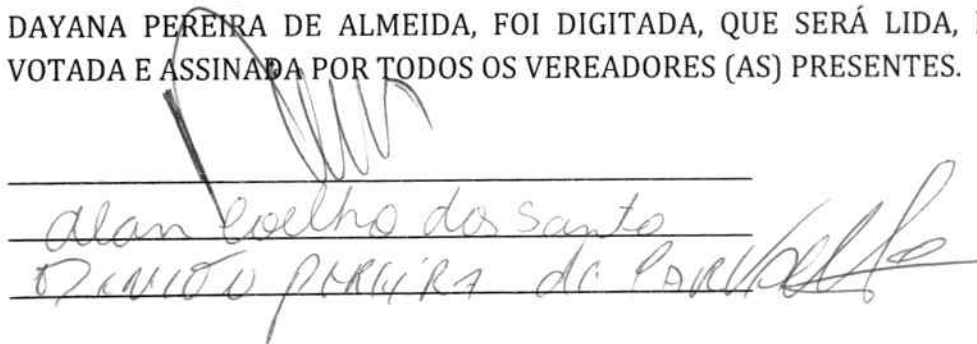 DAYANA PEREIRA DE ALMEIDA, FOI DIGITADA, QUE SERÁ LIDA,
VOTADA E ASSINADA POR TODOS OS VEREADORES (AS) PRESENTES.
Alan Coelho dos Santo
PEREIRA de